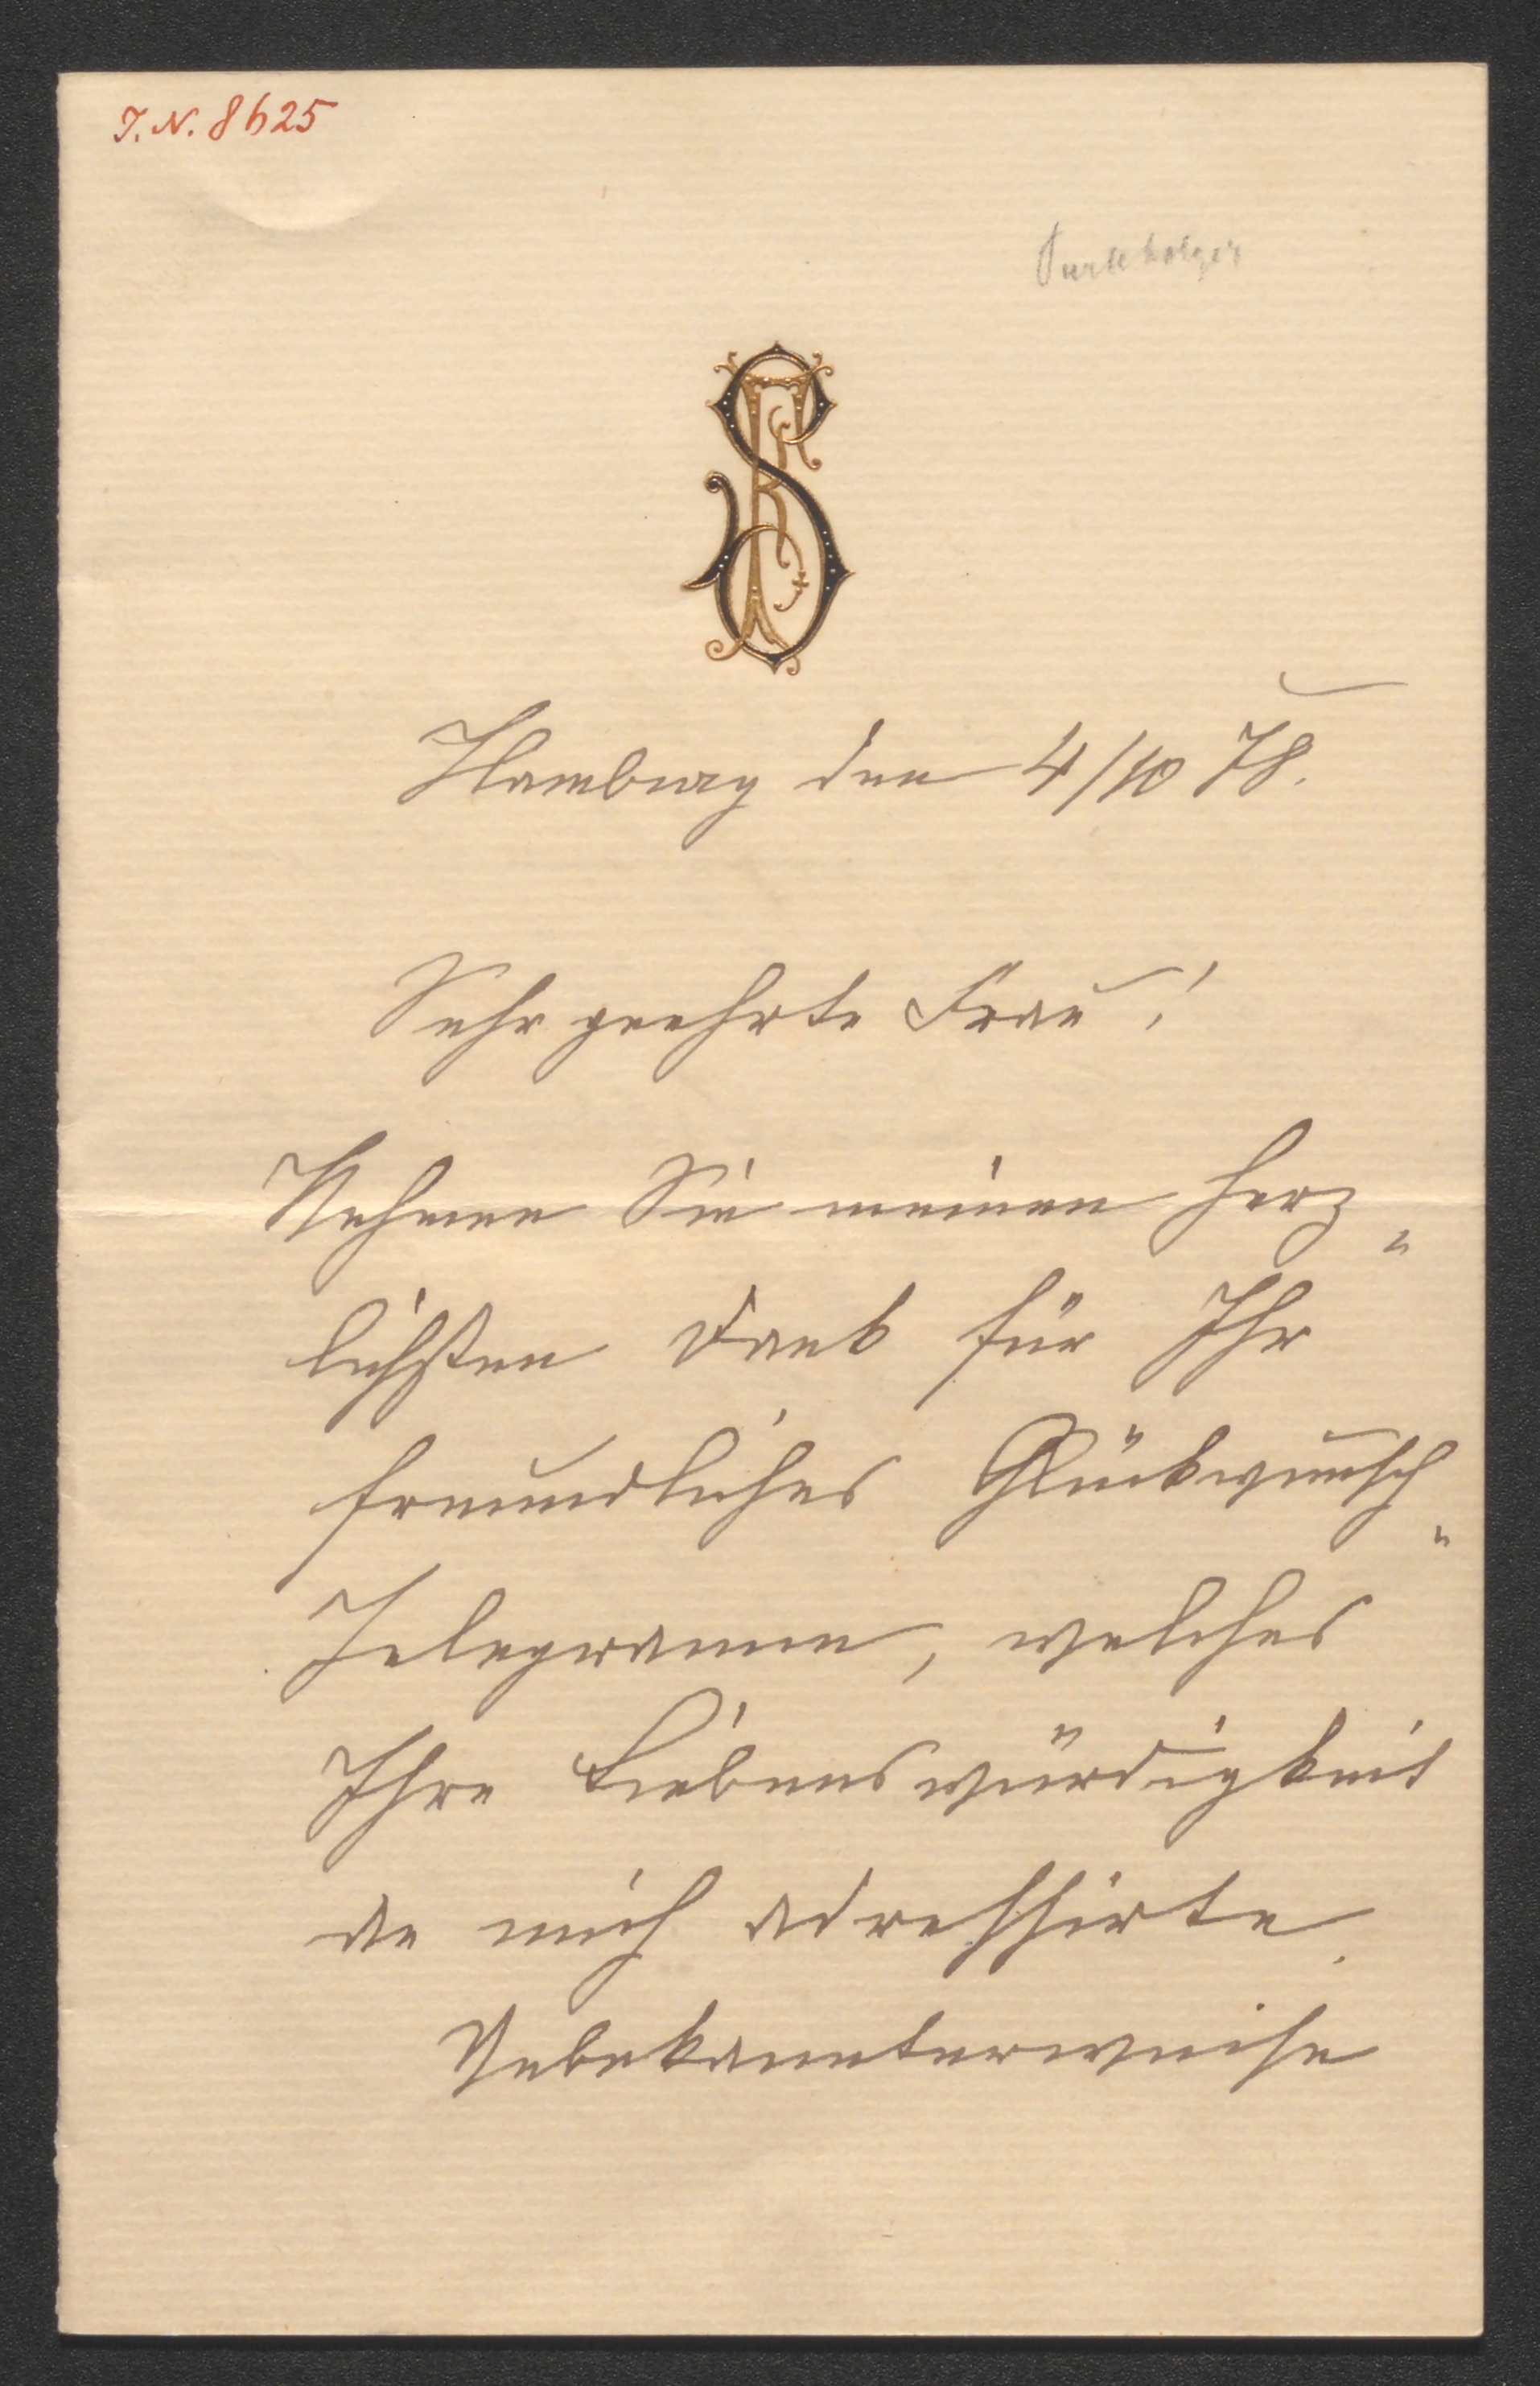 I.N. 8625
Hamburg den 4/10 78.
Sehr geehrte Frau!
Nehmen Sie meinen herz„
lichsten Dank für Ihr
freundliches Glückwunsch„
Telegramm, welches
Ihre Liebenswürdigkeit
an mich adressirte.
Unbekannterweise